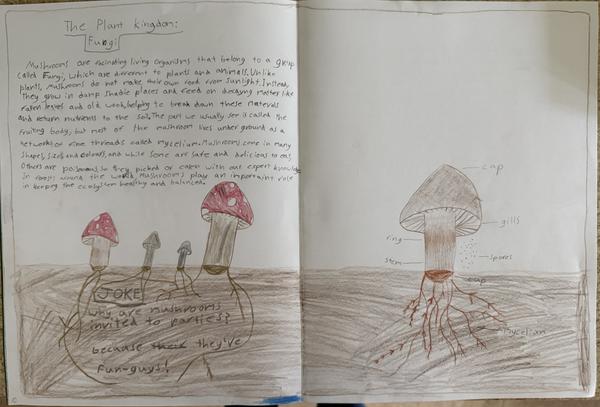 The Plant Kingdom:
Fungi
Mushrooms are facinating living organisms that belong to a group
called Fungi, which are different to plants and animals. Unlike
plants, Mushrooms do not make their own food from sunlight. Instead,
they grow in damp shadie places and feed on decaying matter like
fallen leaves and old wood, helping to break down these materials
and return nutrients to the soil. The part we usually see is called the
fruiting body, but most of the mushroom lives under ground as a
network of fine threads called mycelium. Mushrooms come in many
shapes, sizes and colours, and while some are safe and delicious to eat,
Others are poisonous, so they picked or eaten with out expert knowledge
in around the world. Mushrooms play an important role
in keeping the ecosystem healthy and balanced.
JOKE
why are mushrooms
invited to parties?
because they've
Fun-guys!
cap
gills
ring
spores
stem
cup
Mycelium